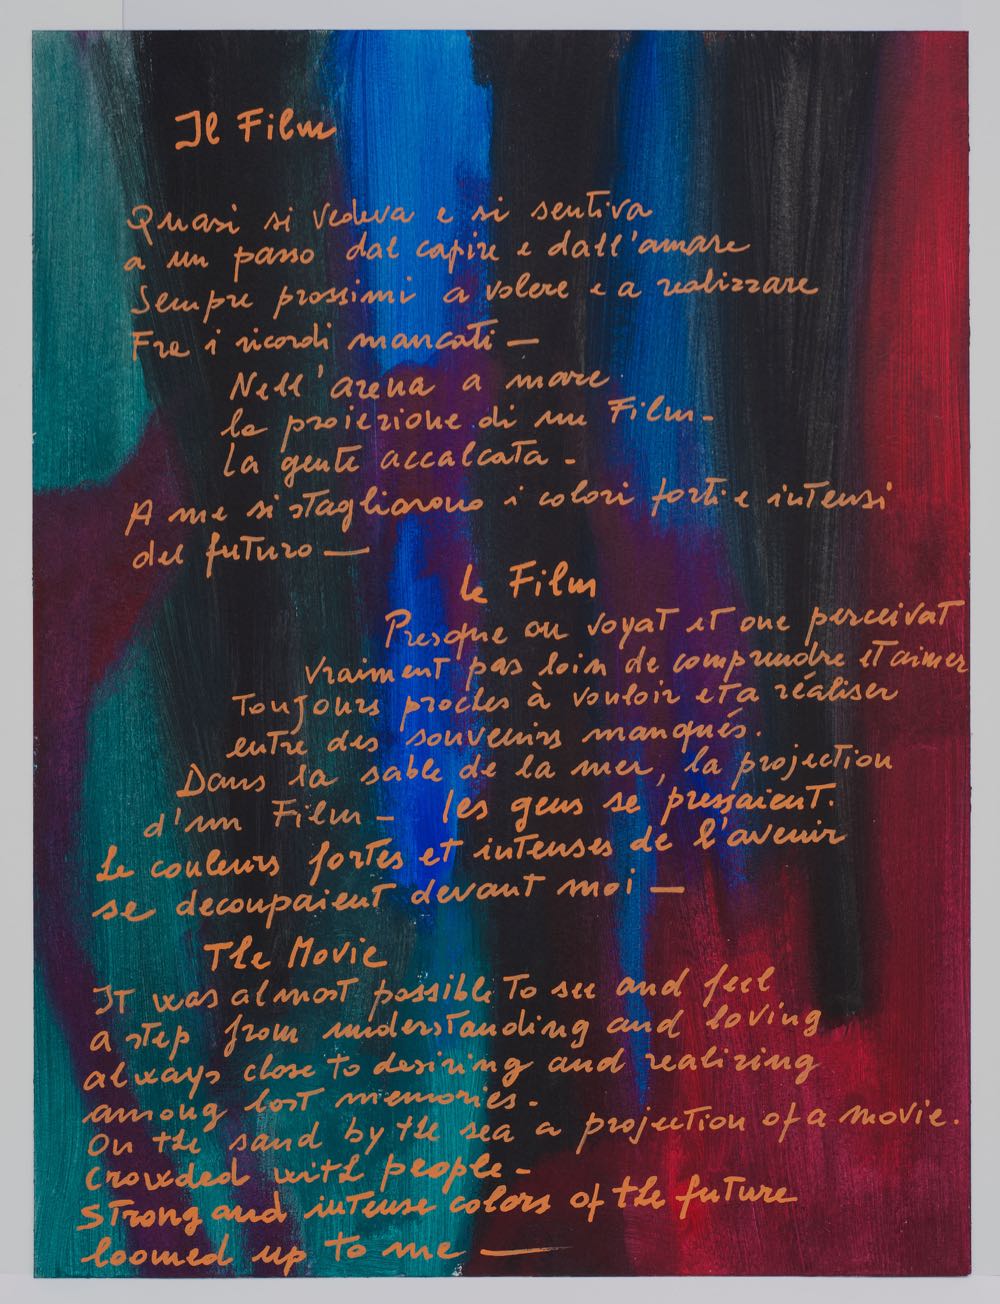 Il Film
Quasi si vedeva e si sentiva
a un passo dal capire e dall'amare
Sempre prossimi a volere e a realizzare
Fre i ricordi mancati —
Nell'arena a mare
la proiezione di un Film -
la gente accalcata -
A me si stagliarono i colori forti e intensi
del futuro —
Le Film
Presque on voyat et one perceivat
vraiment pas loin de comprendre et aimer
Toujours proches à vouloir et a réaliser
entre des souvenirs manqués.
Dans la sable de la mer, la projection
d'un Film - les gens se pressaient.
Le couleurs fortes et intenses de l'avenir
se decoupaient devant moi —
The Movie
It was almost possible to see and feel
a step from understanding and loving
always close to desiring and realizing
among lost memories -
On the sand by the sea a projection of a movie.
Crowded with people -
Strong and intense colors of the future
loomed up to me —